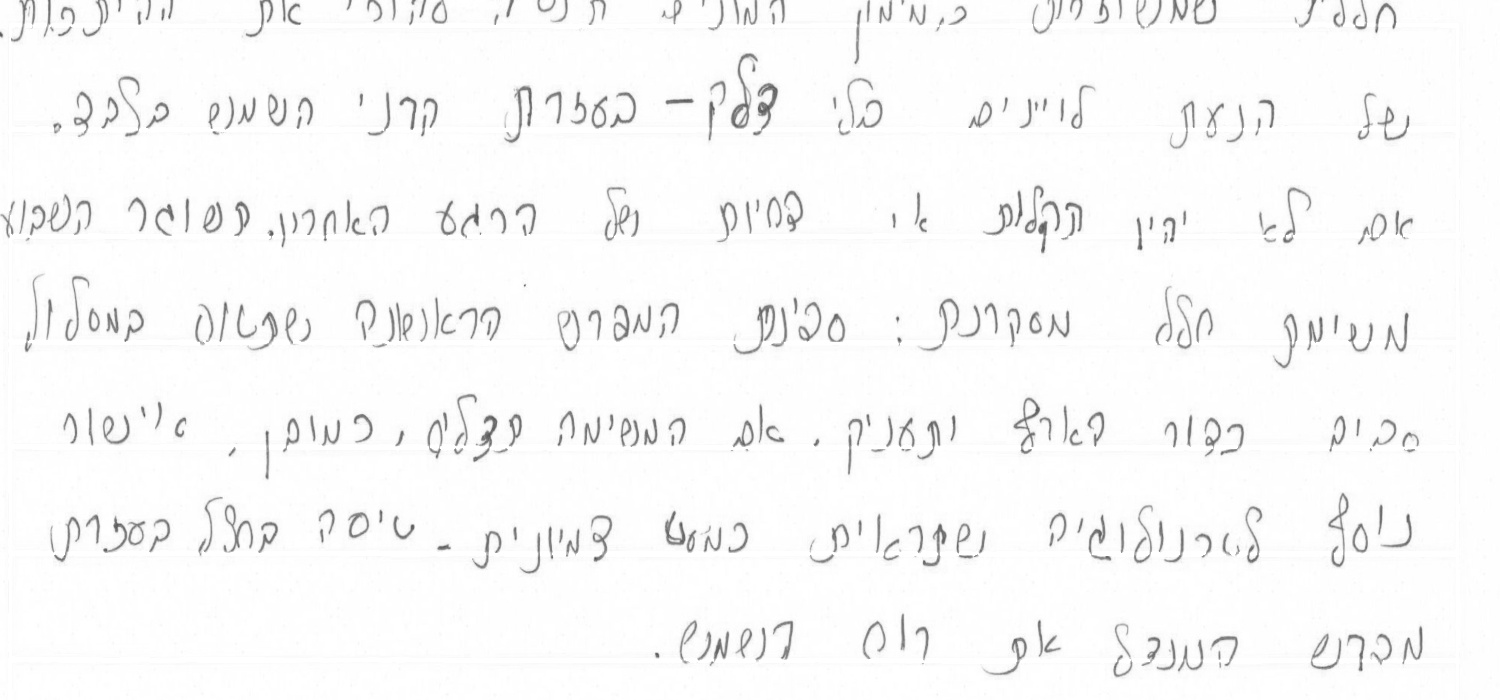 חללית שמשתמשת במימון המונים תנסה את ההיתכנות
של הנעת לוויינים בלי דלק – בעזרת קרני השמש בלבד.
אם לא יהיו תקלות או דחיות של הרגע האחרון, תשוגר השבוע
משימת חלל מסקרנת: ספינת המפרש הראשונה שתטוס במסלול
סביב כדור הארץ ותעניק, אם המשימה תצליח, כמובן, אישור
נוסף לטכנולוגיה שנראית כמעט דמיונית - טיסה בחלל בעזרת
מפרש המנצל את רוח השמש.